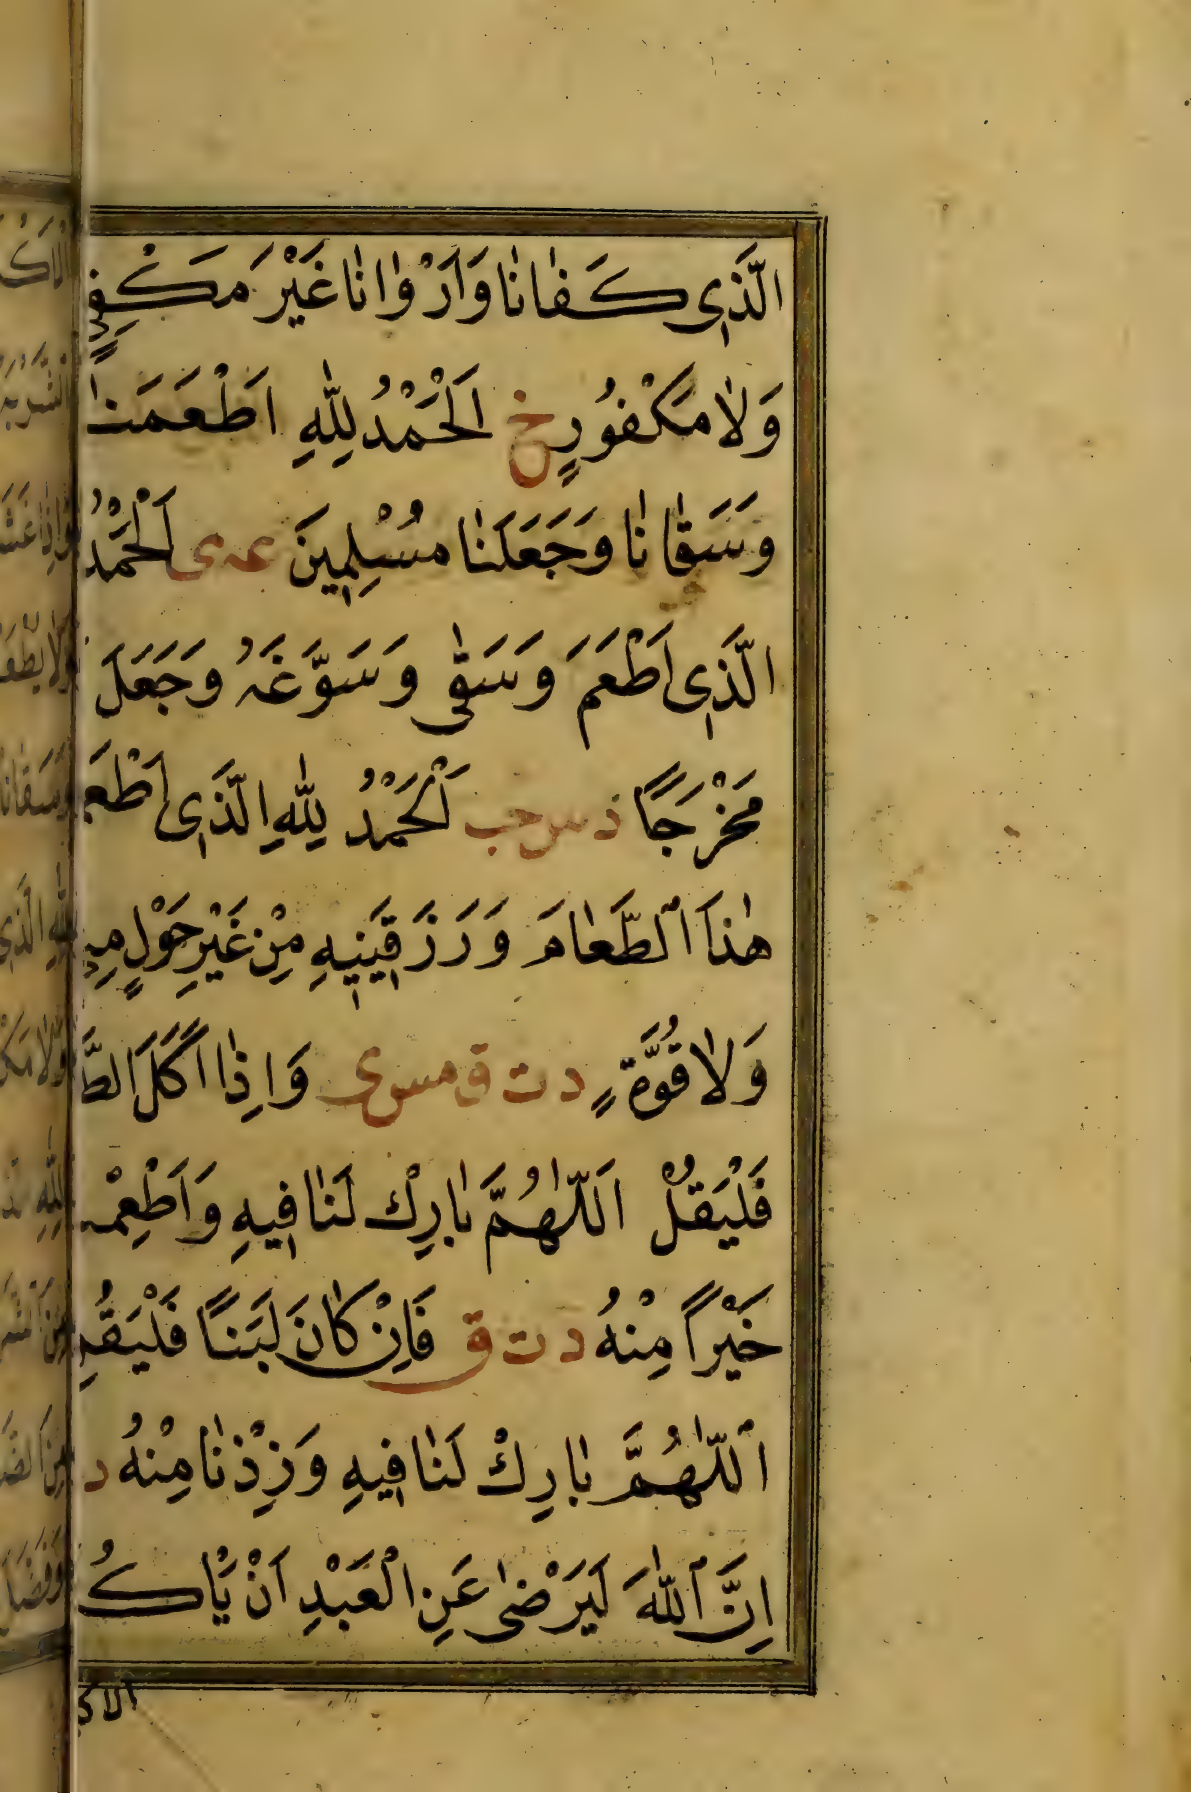 الَّذِي كَفٰانٰا وَاَرْوٰانٰا غَيْرَ مَكْفِيٍّ
وَلٰا مَكْفُورٍ خ اَلْحَمْدُ لِلّٰهِ اَطْعَمَنٰا
وَسَقٰانٰا وَجَعَلَنٰا مُسْلِمِينَ عه ى اَلْحَمْدُ
الَّذِي اَطْعَمَ وَسَقٰى وَسَوَّغَهُ وَجَعَلَ
مَخْرَجًا د س حب اَلْحَمْدُ لِلّٰهِ الَّذِي اَطْعَمَ
هٰذَا الطَّعٰامَ وَرَزَقَنِيهِ مِنْ غَيْرِ حَوْلٍ مِنِّي
وَلٰا قُوَّةٍ د ت ق مس ى وَاِذٰا اَكَلَ الطَّ
فَلْيَقُلْ اَللّٰهُمَّ بٰارِكْ لَنٰا فِيهِ وَاَطْعِمْنٰا
خَيْرًا مِنْهُ د ت ق فَاِنْ كٰانَ لَبَنًا فَلْيَقُلْ
اَللّٰهُمَّ بٰارِكْ لَنٰا فِيهِ وَزِدْنٰا مِنْهُ د
اِنَّ اللّٰهَ لَيَرْضٰى عَنِ الْعَبْدِ اَنْ يَاْكُ
الاك